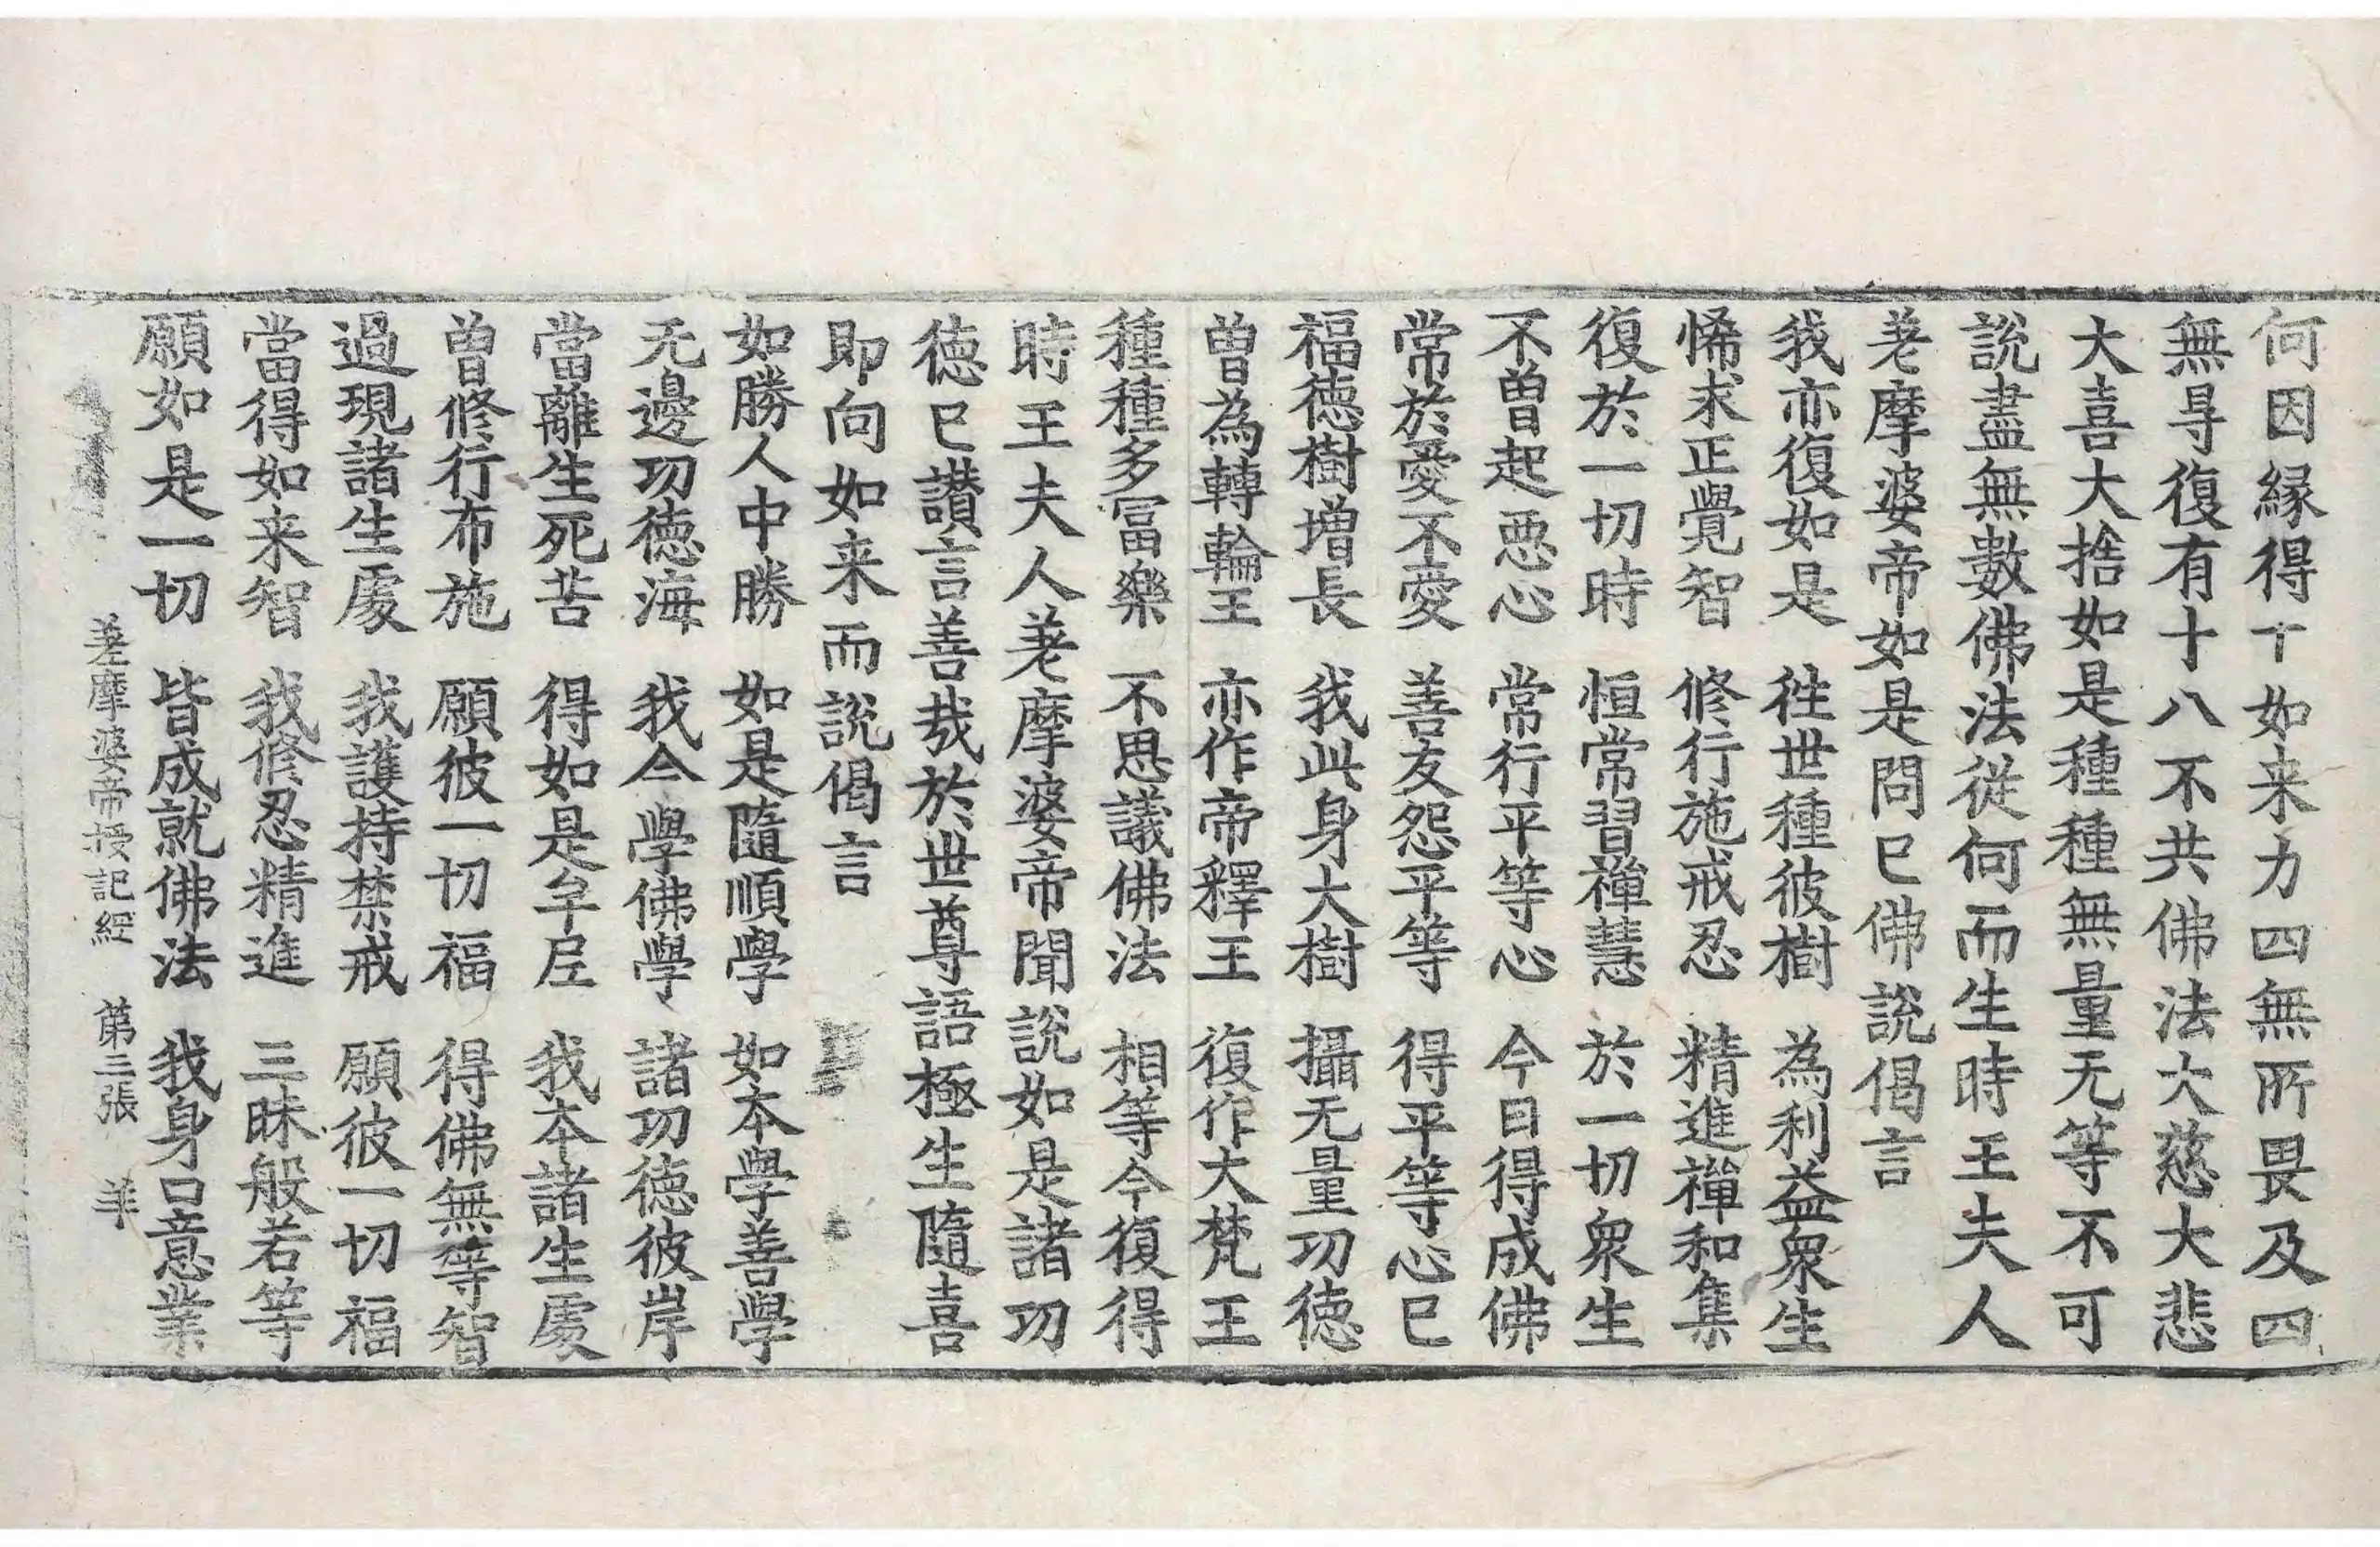 何因縁得十如来力四無所畏及四
無㝵復有十八不共佛法大慈大悲
大喜大捨如是種種無量无等不可
說盡無數佛法從何而生時王夫人
差摩婆帝如是問已佛說偈言
我亦復如是 徃世種彼樹 為利益衆生
悕求正覺智 修行施戒忍 精進禪和集
復於一切時 恒常習禪慧 於一切衆生
不曽起惡心 常行平等心 今日得成佛
常於愛不愛 善友怨平等 得平等心已
福徳樹増長 我此身大樹 攝无量功徳
曽為轉輪王 亦作帝釋王 復作大梵王
種種多冨樂 不思議佛法 相等今復得
時王夫人差摩婆帝聞說如是諸功
徳已讃言善哉於世尊語極生隨喜
即向如来而說偈言
如勝人中勝 如是隨順學 如本學善學
无邊功徳海 我今學佛學 諸功徳彼岸
當離生死苦 得如是牟尼 我本諸生處
曽修行布施 願彼一切福 得佛無等智
過現諸生處 我護持禁戒 願彼一切福
當得如来智 我修忍精進 三昧般若等
願如是一切 皆成就佛法 我身口意業
差摩婆帝授記經 第三張 羊